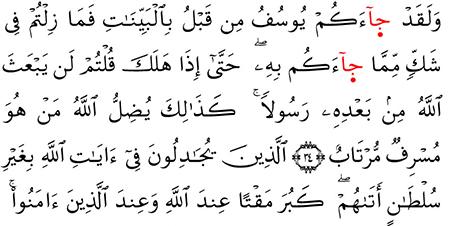 وَلَقَدْ جَآءَكُمْ يُوسُفُ مِن قَبْلُ بِٱلْبَيِّنَـٰتِ فَمَا زِلْتُمْ فِى
شَكٍّ مِّمَّا جَآءَكُم بِهِۦ ۖ حَتَّىٰٓ إِذَا هَلَكَ قُلْتُمْ لَن يَبْعَثَ
ٱللَّهُ مِنۢ بَعْدِهِۦ رَسُولًا ۚ كَذَٰلِكَ يُضِلُّ ٱللَّهُ مَنْ هُوَ
مُسْرِفٌ مُّرْتَابٌ ۝٣٤ ٱلَّذِينَ يُجَـٰدِلُونَ فِىٓ ءَايَـٰتِ ٱللَّهِ بِغَيْرِ
سُلْطَـٰنٍ أَتَىٰهُمْ ۖ كَبُرَ مَقْتًا عِندَ ٱللَّهِ وَعِندَ ٱلَّذِينَ ءَامَنُوا۟ ۚ